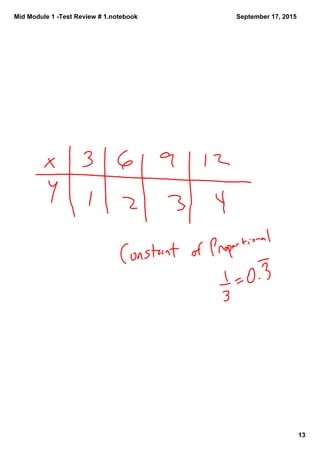 Mid Module 1 -Test Review # 1.notebook September 17, 2015
x 3 6 9 12
y 1 2 3 4
Constant of Proportional
1/3 = 0.3̅
13